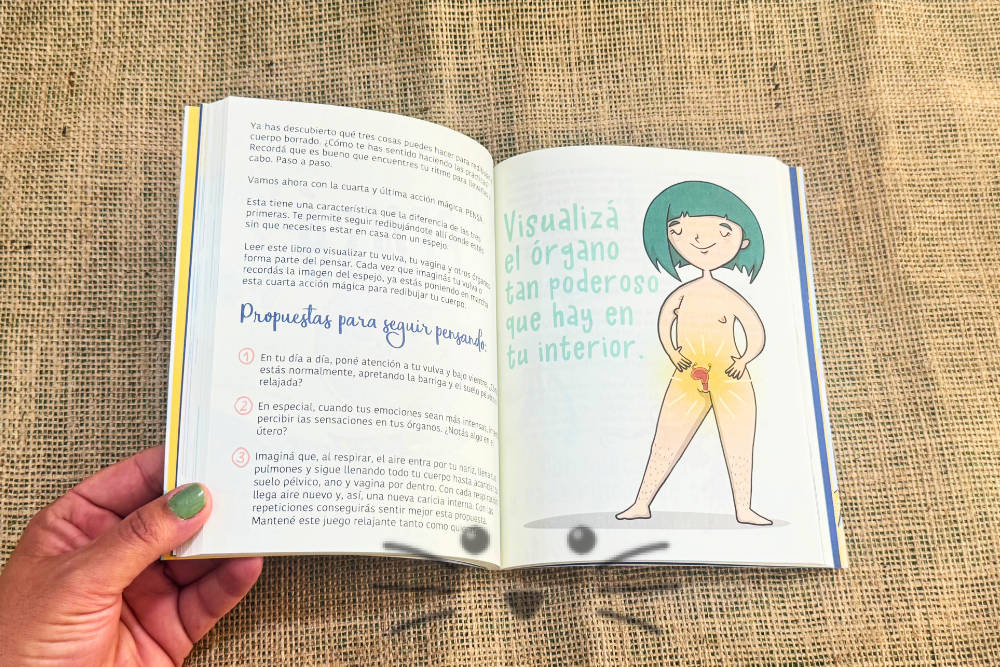 Ya has descubierto qué tres cosas puedes hacer para
cuerpo borrado. ¿Cómo te has sentido haciendo las
Recordá que es bueno que encuentres tu ritmo para
cabo. Paso a paso.
Vamos ahora con la cuarta y última acción mágica: PENSÁ.
Esta tiene una característica que la diferencia de las tres
primeras. Te permite seguir redibujándote allí donde estés
sin que necesites estar en casa con un espejo.
Leer este libro o visualizar tu vulva, tu vagina y otros órganos
forma parte del pensar. Cada vez que imaginás tu vulva o
recordás la imagen del espejo, ya estás poniendo en marcha
esta cuarta acción mágica para redibujar tu cuerpo.
Propuestas para seguir pensando:
1 En tu día a día, poné atención a tu vulva y bajo vientre.
estás normalmente, apretando la barriga y el suelo
relajada?
2 En especial, cuando tus emociones sean más intensas,
percibir las sensaciones en tus órganos. ¿Notás algo en el
útero?
3 Imaginá que, al respirar, el aire entra por tu nariz, llena tus
pulmones y sigue llenando todo tu cuerpo hasta
suelo pélvico, ano y vagina por dentro. Con cada
llega aire nuevo y, así, una nueva caricia interna. Con las
repeticiones conseguirás sentir mejor esta propuesta.
Mantené este juego relajante tanto como
Visualizá
el órgano
tan poderoso
que hay en
tu interior.